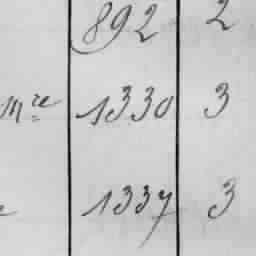 892 2
Mre 1330 3
1337 3